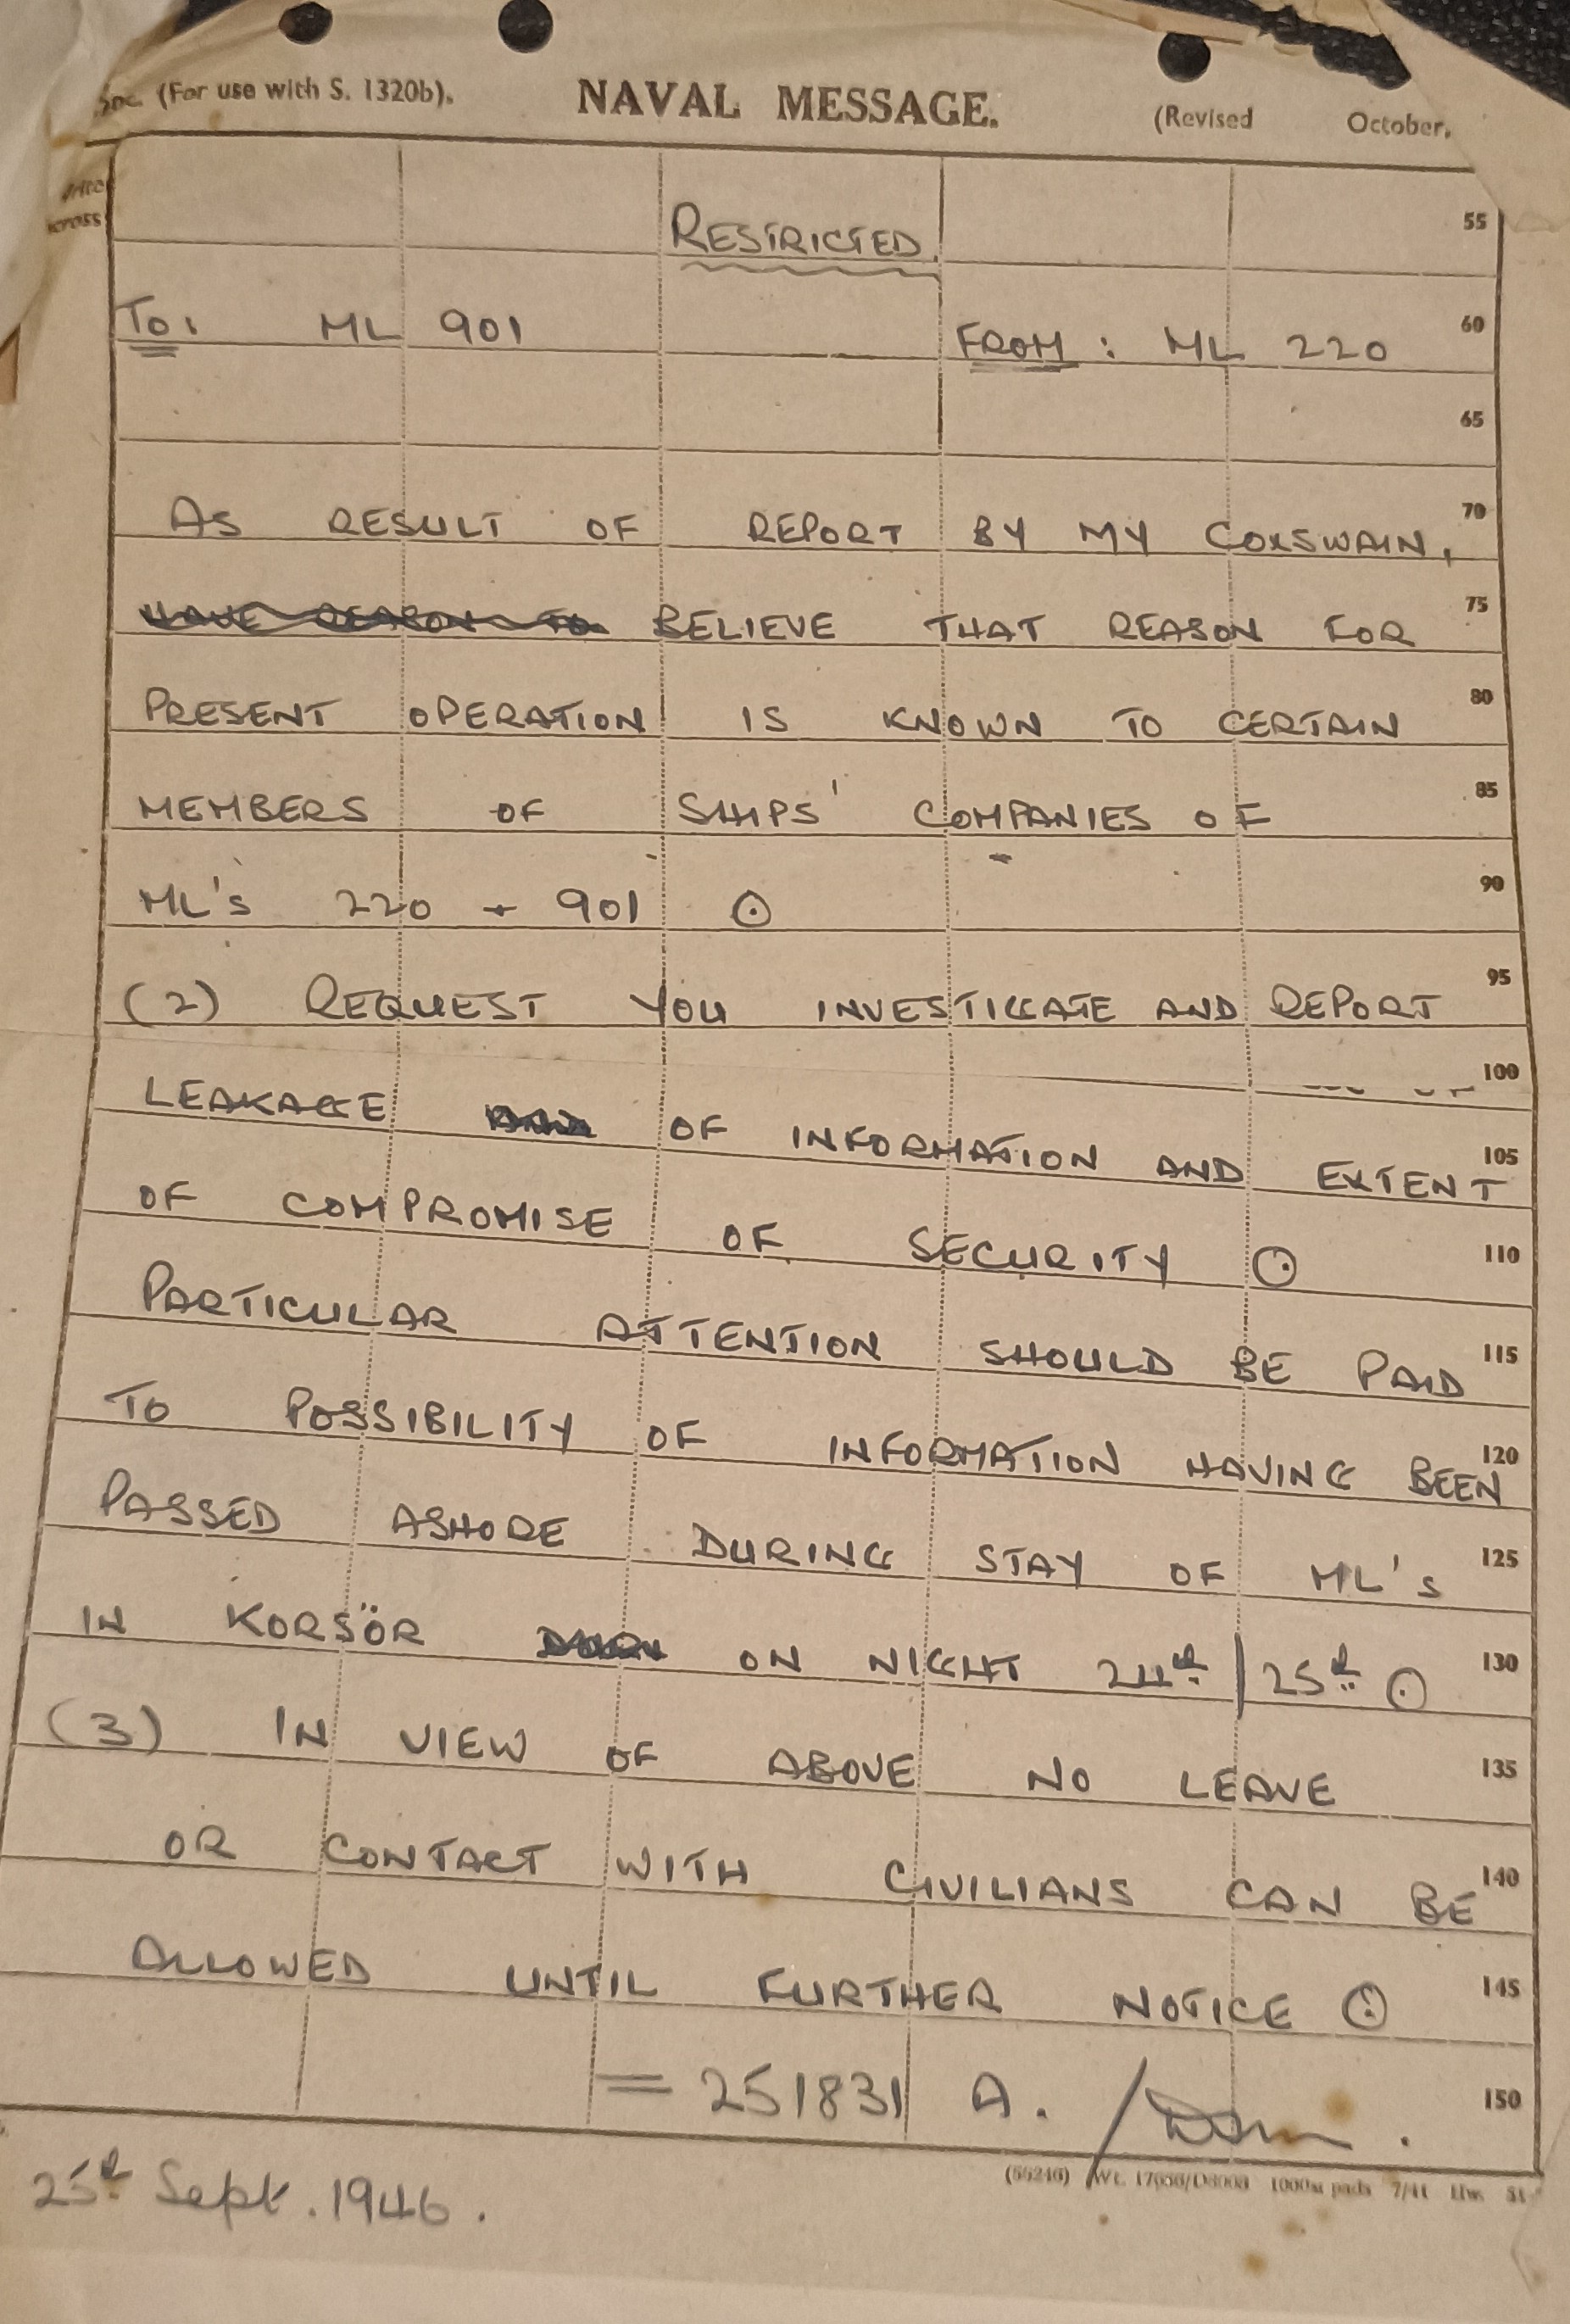 (For use with S. 1320b). NAVAL MESSAGE. (Revised October,
RESTRICTED. 55
TO: ML 901 FROM: ML 220 60
65
AS RESULT OF REPORT BY MY COXSWAIN, 70
HAVE REASON TO BELIEVE THAT REASON FOR 75
PRESENT OPERATION IS KNOWN TO CERTAIN 80
MEMBERS OF SHIPS' COMPANIES OF 85
ML's 220 + 901 ⊙ 90
(2) REQUEST YOU INVESTIGATE AND REPORT 95
100
LEAKAGE OF INFORMATION AND EXTENT 105
OF COMPROMISE OF SECURITY ⊙ 110
PARTICULAR ATTENTION SHOULD BE PAID 115
TO POSSIBILITY OF INFORMATION HAVING BEEN 120
PASSED ASHORE DURING STAY OF ML's 125
IN KORSÖR ON NIGHT 24th | 25th ⊙ 130
(3) IN VIEW OF ABOVE NO LEAVE 135
OR CONTACT WITH CIVILIANS CAN BE 140
ALLOWED UNTIL FURTHER NOTICE ⊙ 145
= 251831 A. 150
1000m pads 7/41
25th Sept. 1946.